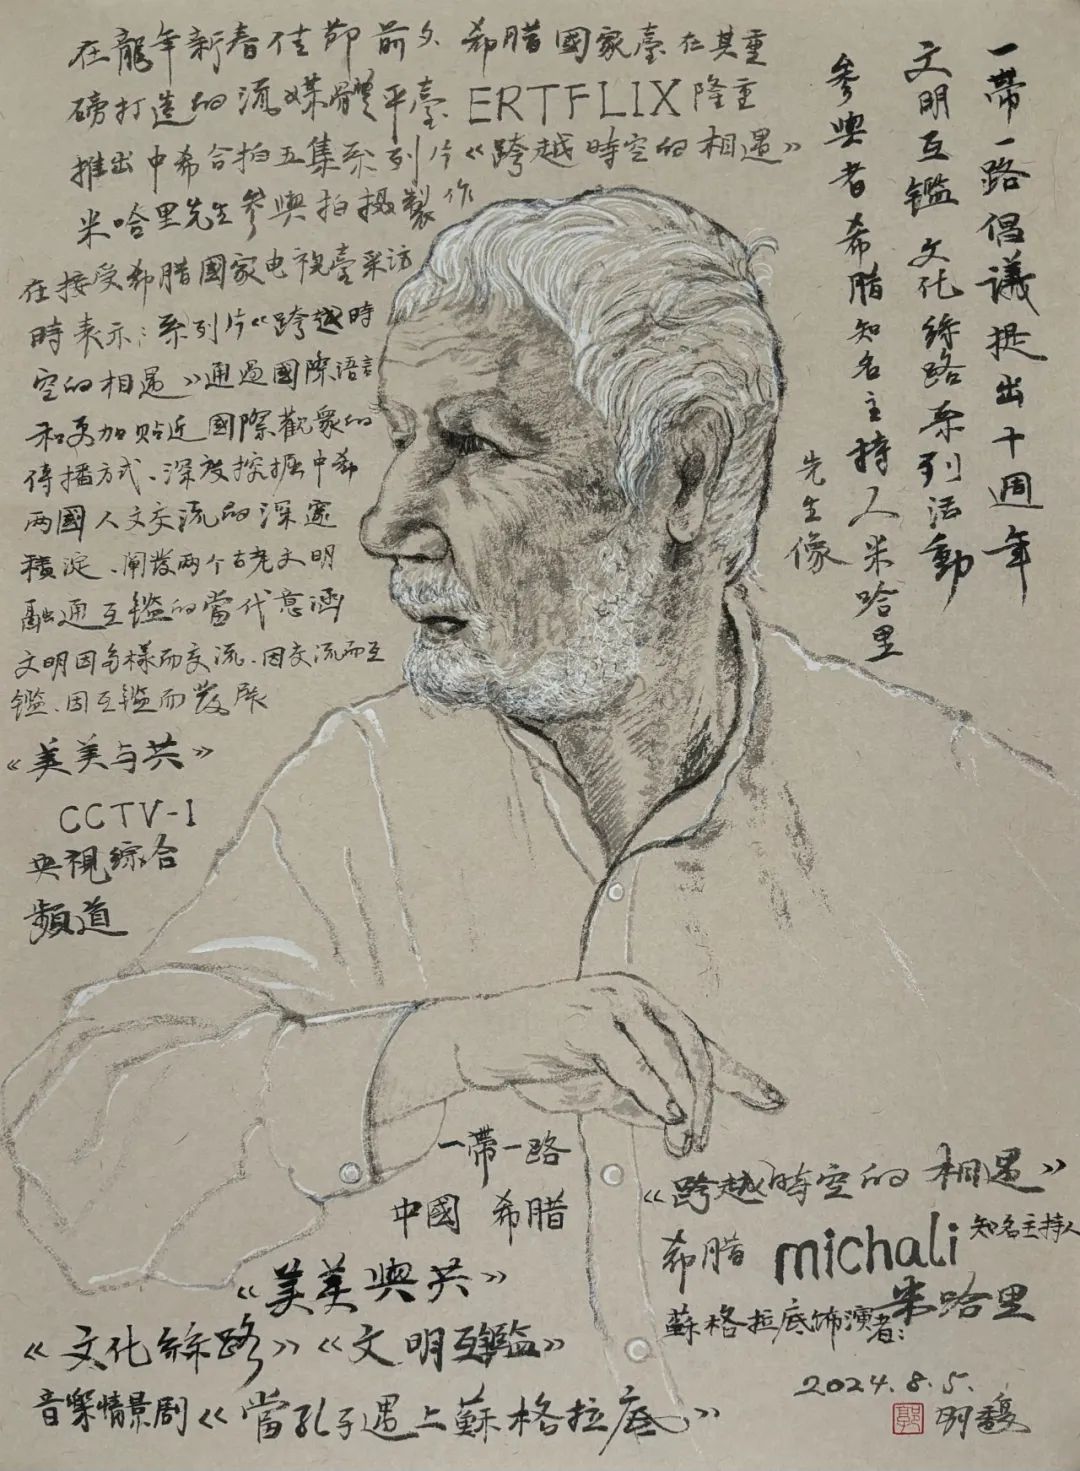 在龍年新春佳節前夕 希腊國家臺在其重
磅打造的流媒體平臺 ERTFLIX隆重
推出中希合拍五集系列片《跨越時空的相遇》
米哈里先生參與拍摄製作
在接受希腊國家电視臺采访
時表示：系列片《跨越時
空的相遇》通過國際語言
和更加贴近國際觀衆的
傳播方式、深度挖掘中希
两國人文交流的深邃
積淀、阐發两个古老文明
融通互鑑的當代意涵
文明因多樣而交流、因交流而互
鑑、因互鑑而發展
《美美与共》
CCTV-1
央視綜合
頻道
一帶一路倡議提出十週年
文明互鑑文化絲路系列活動
參與者希腊知名主持人米哈里
先生像
一帶一路
中國 希腊
《美美與共》
《文化絲路》《文明互鑑》
音樂情景剧《當孔子遇上蘇格拉底》
《跨越時空的相遇》
希腊 michali 知名主持人
米哈里
蘇格拉底饰演者：
2024.8.5.
郭 明馥